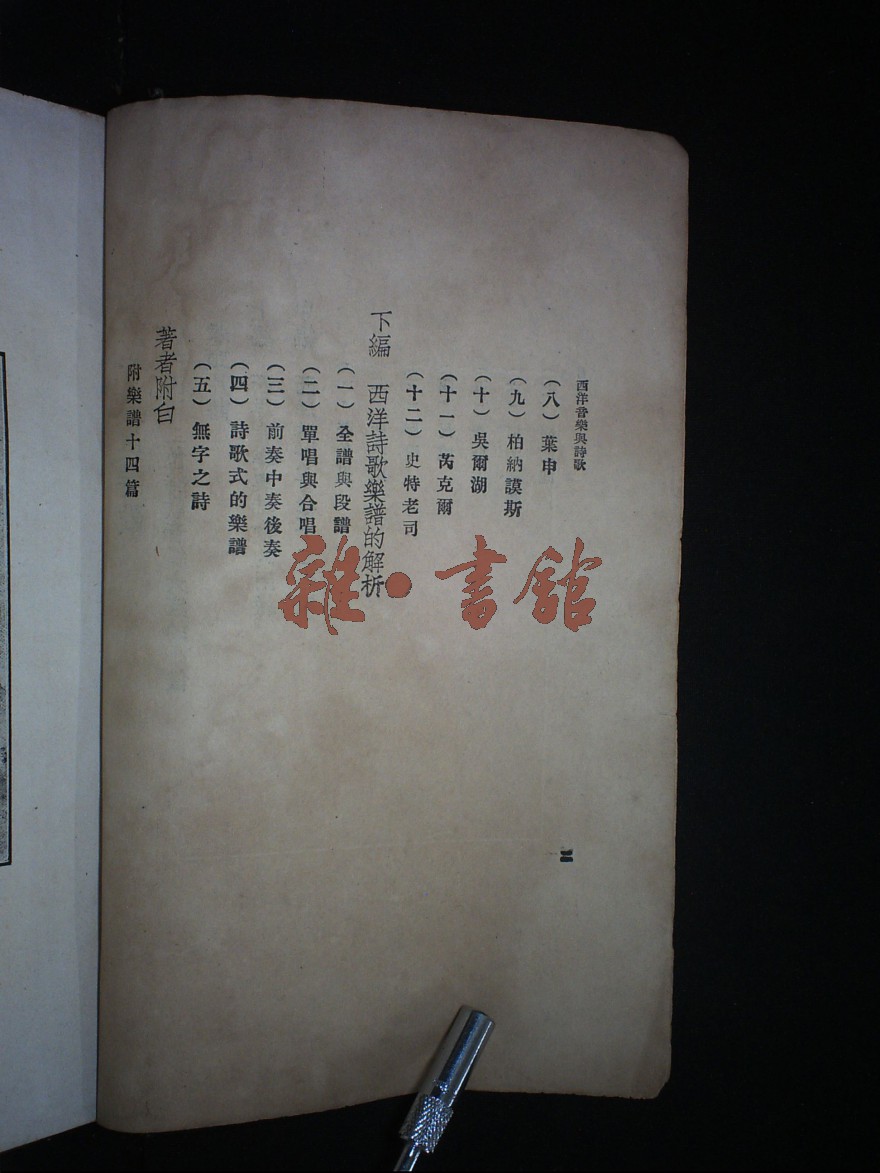 西洋音樂與詩歌
（八）葉申
（九）柏納謨斯
（十）吳爾湖
（十一）芮克爾
（十二）史特老司
下編　西洋詩歌樂譜的解析
（一）全譜與段譜
（二）單唱與合唱
（三）前奏中奏後奏
（四）詩歌式的樂譜
（五）無字之詩
著者附白
附樂譜十四篇
二
雜·書館